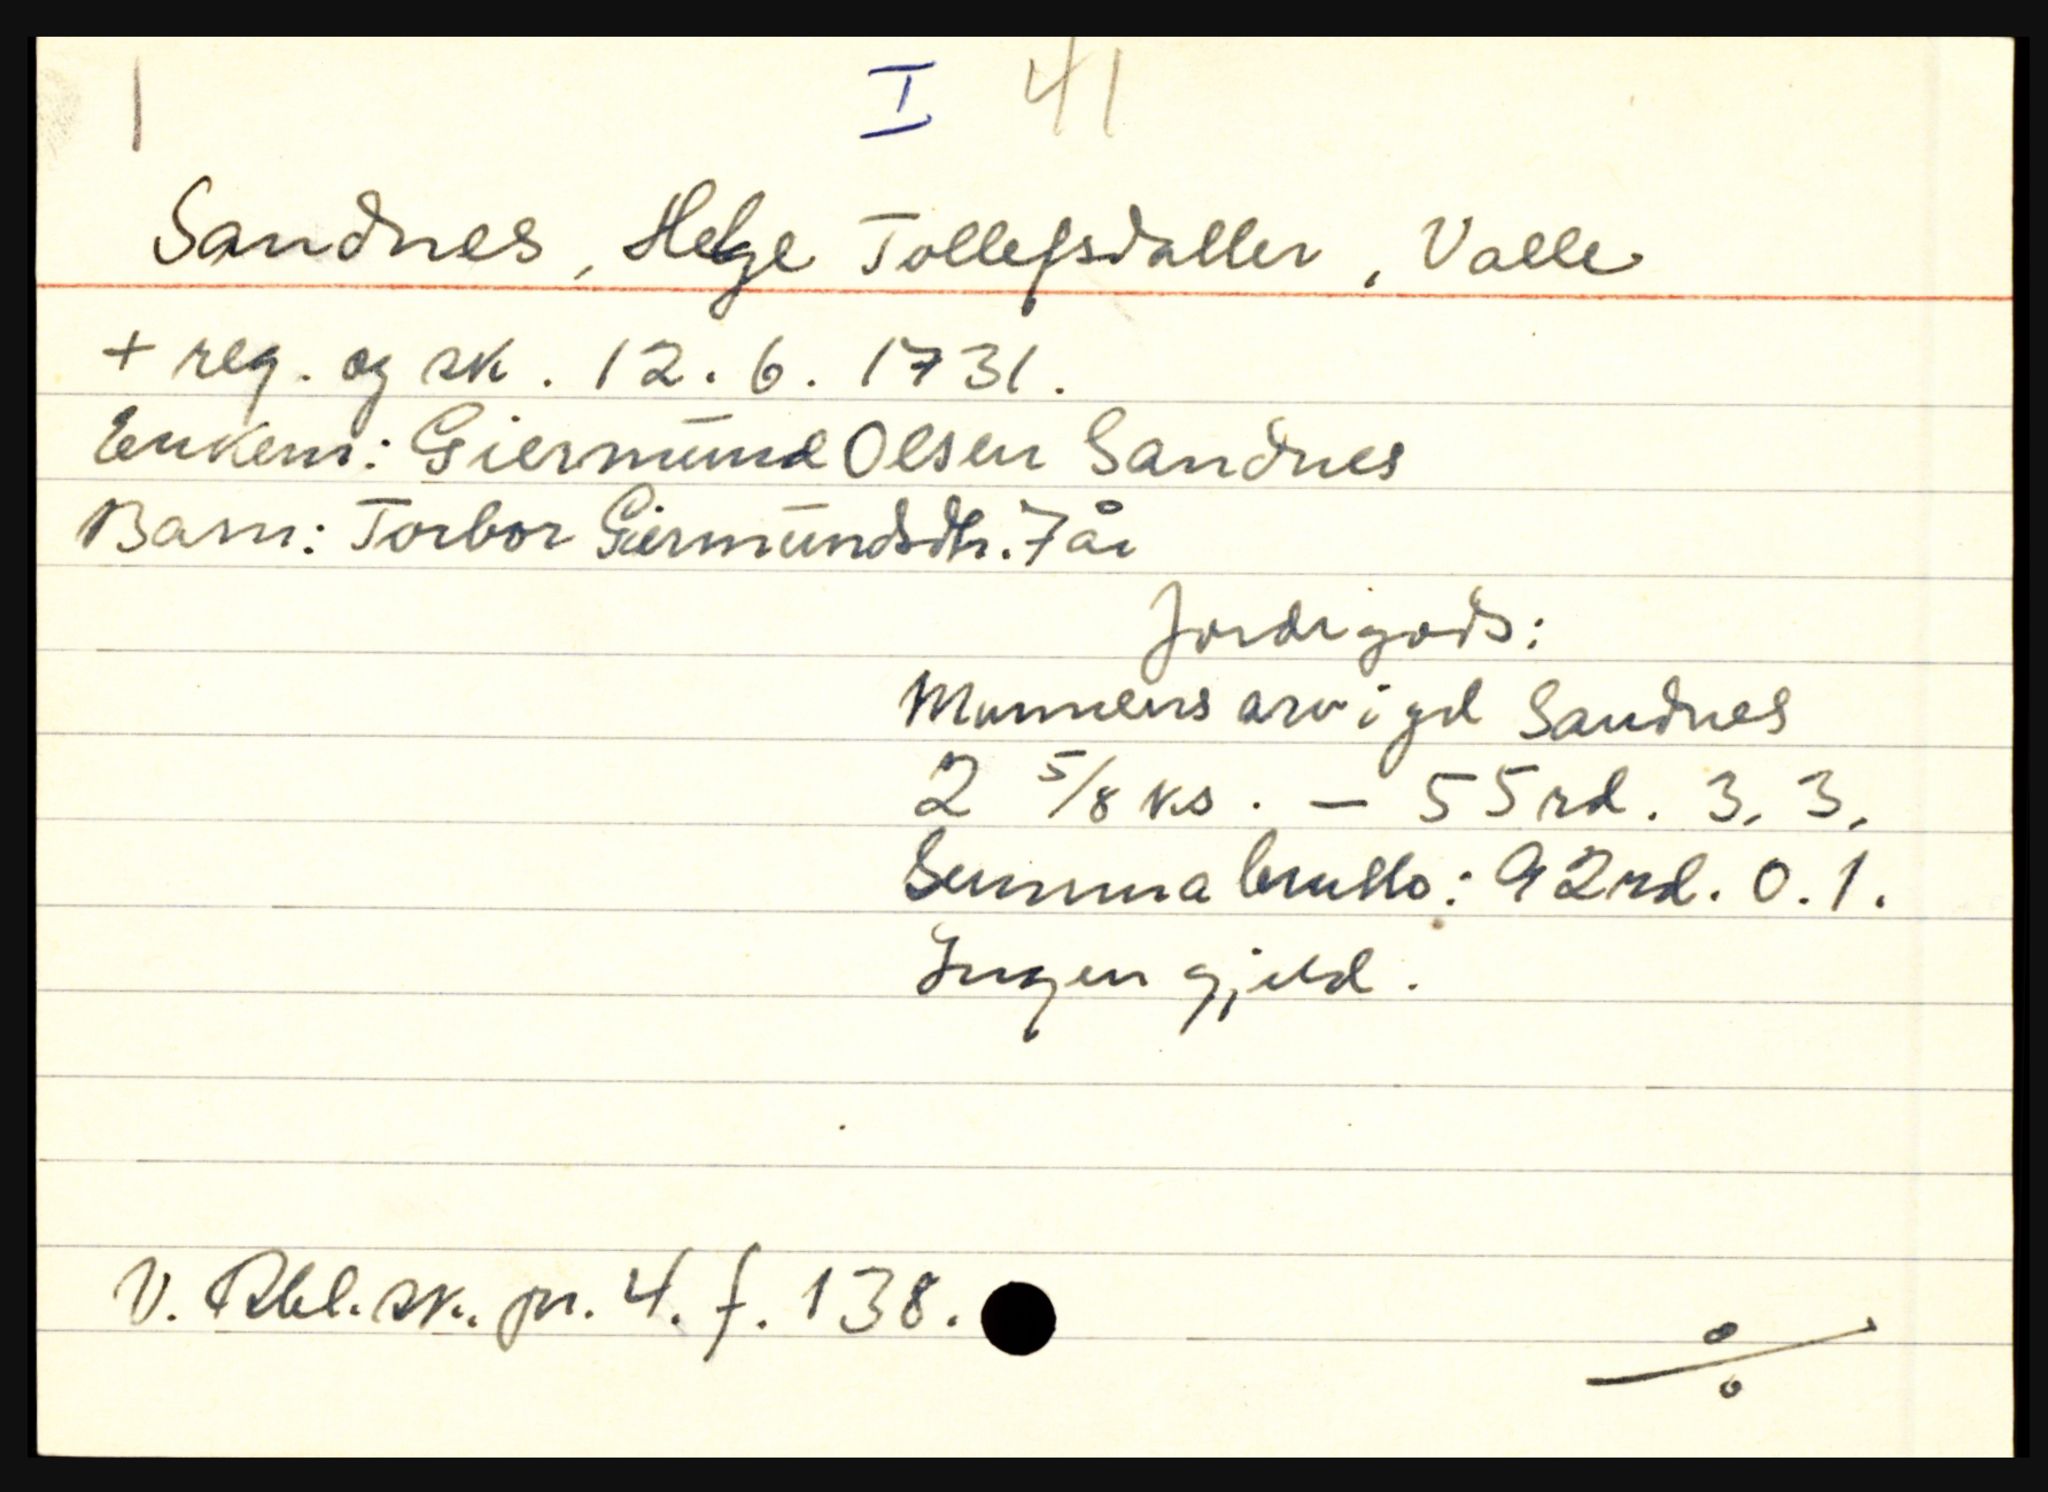 1 I 41
Sandnes, Helge Tollefsdatter, Valle
+ reg. og sk. 12.6.1731.
Enkem: Giermund Olsen Sandnes
Barn: Torbor Giermundsdtr. 7 år
Jordegods:
Mannens arv i gd Sandnes
2 5/8 ks. – 55 rd. 3. 3.
Summa brutto: 92 rd. 0. 1.
Ingen gjeld.
V. Rbl. sk. pr. 4. f. 138.